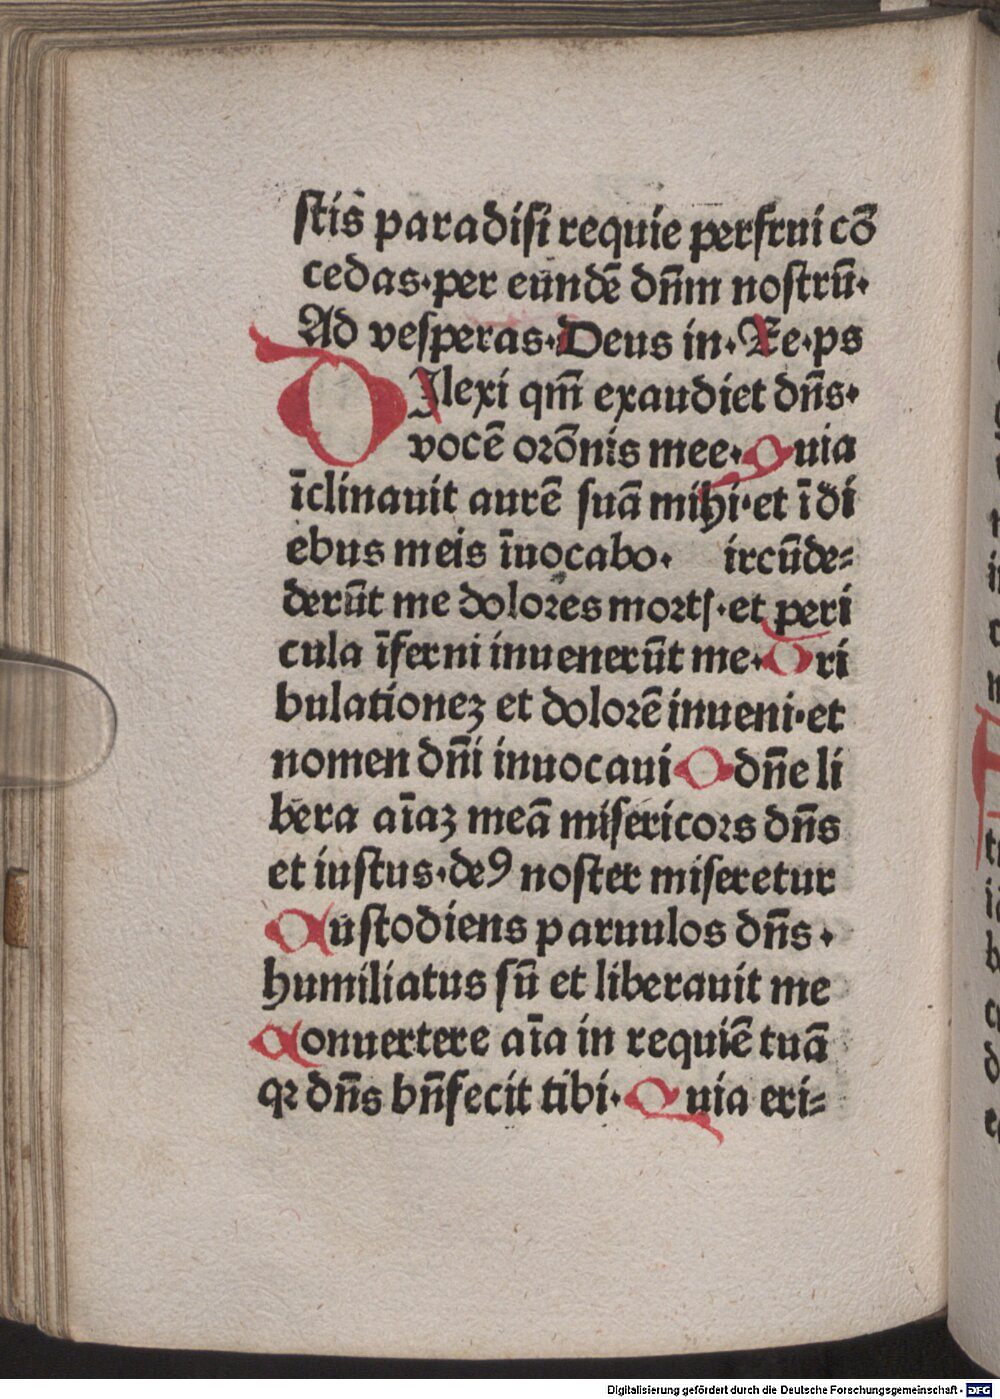 ſtis̄ paradiſi requie perfrui cō
cedas·per eundē dn̄m noſtrū·
Ad veſperas·Deus in·Fe·ps
DIlexi qm̄ exaudiet dn̄s·
vocē orōnis mee·Quia
īclinauit aurē ſuā mihi·et ī di
ebus meis īuocabo· ircūde⸗
derūt me dolores mortꝭ·et peri
cula īferni inuenerūt me·Tri
bulationeꝫ et dolorē inueni·et
nomen dn̄i inuocaui O dn̄e li
bera aīaꝫ meā miſericors dn̄s
et iuſtus·deꝰ noſter miſeretur
Cuſtodiens paruulos dn̄s·
humiliatus ſū et liberauit me
Conuertere aīa in requiē tuā
qꝛ dn̄s bn̄fecit tibi·Quia eri⸗
Digitalisierung gefördert durch die Deutsche Forschungsgemeinschaft - DFG